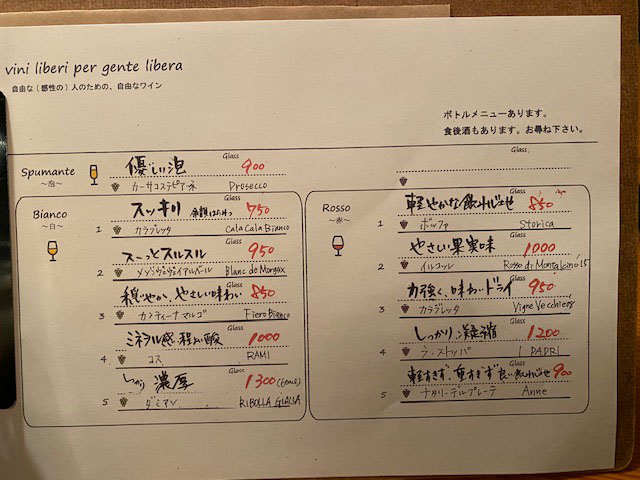 vini liberi per gente libera
自由な(感性の)人のための、自由なワイン
ボトルメニューあります。
食後酒もあります。お尋ね下さい。
Spumante
~泡~
優しい泡 Glass 900
カーサコステピアーネ Prosecco
Glass
Bianco
~白~
スッキリ Glass 750
1 カラブレッタ Cala Cala Bianco
スーっとスルスル Glass 950
2 Blanc de Morgex
穏やか、やさしい味わい Glass 850
3 カンティーナ マルゴ Fiero Bianco
ミネラル感、程よい酸 Glass 1000
4 コス RAMI
しっかり 濃厚 Glass 1300 (60ml)
5 ダミアン RIBOLLA GIALLA
Rosso
~赤~
軽やかな飲み心地 Glass 850
1 ボッファ Storica
やさしい果実味 Glass 1000
2 イルコッレ Rosso di Montalcino '15
力強く、味わいドライ Glass 950
3 カラブレッタ Vigne Vecchie
しっかり、凝縮 Glass 1200
4 ラ・ストッパ I PADRI
軽すぎず 重すぎず 良い飲み心地 Glass 900
5 ナタリーデルプレーテ Anne